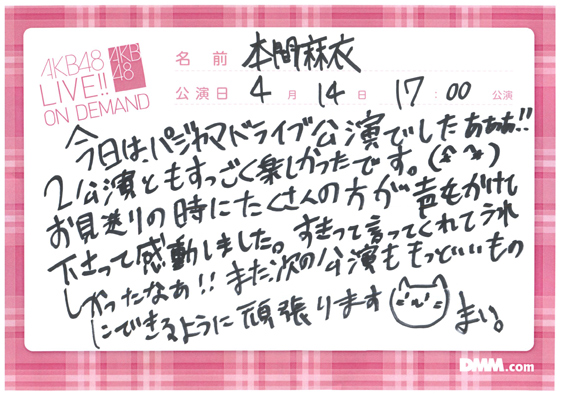 AKB48
LIVE!!
ON DEMAND
AKB
48
名前 本間麻衣
公演日 4月14日 17:00 公演
今日は、パジャマドライブ公演でしたぁぁぁ!!
2公演ともすっごく楽しかったです。(^^*)
お見送りの時にたくさんの方が声をかけて
下さって感動しました。すきって言ってくれてうれ
しかったなぁ!!また次の公演ももっといいもの
にできるように頑張ります
まい。
DMM.com